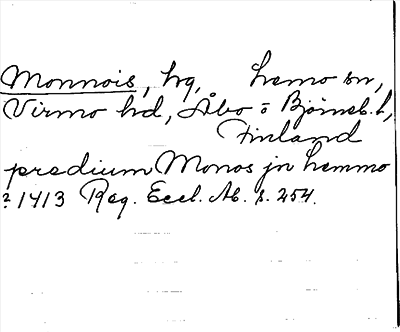 Monnois, hg, Lemo sn,
Virmo hd, Åbo o Björneb. l,
Finland
predium Monos jn Lemmo
? 1413 Reg. Eccl. Ab. s. 254.